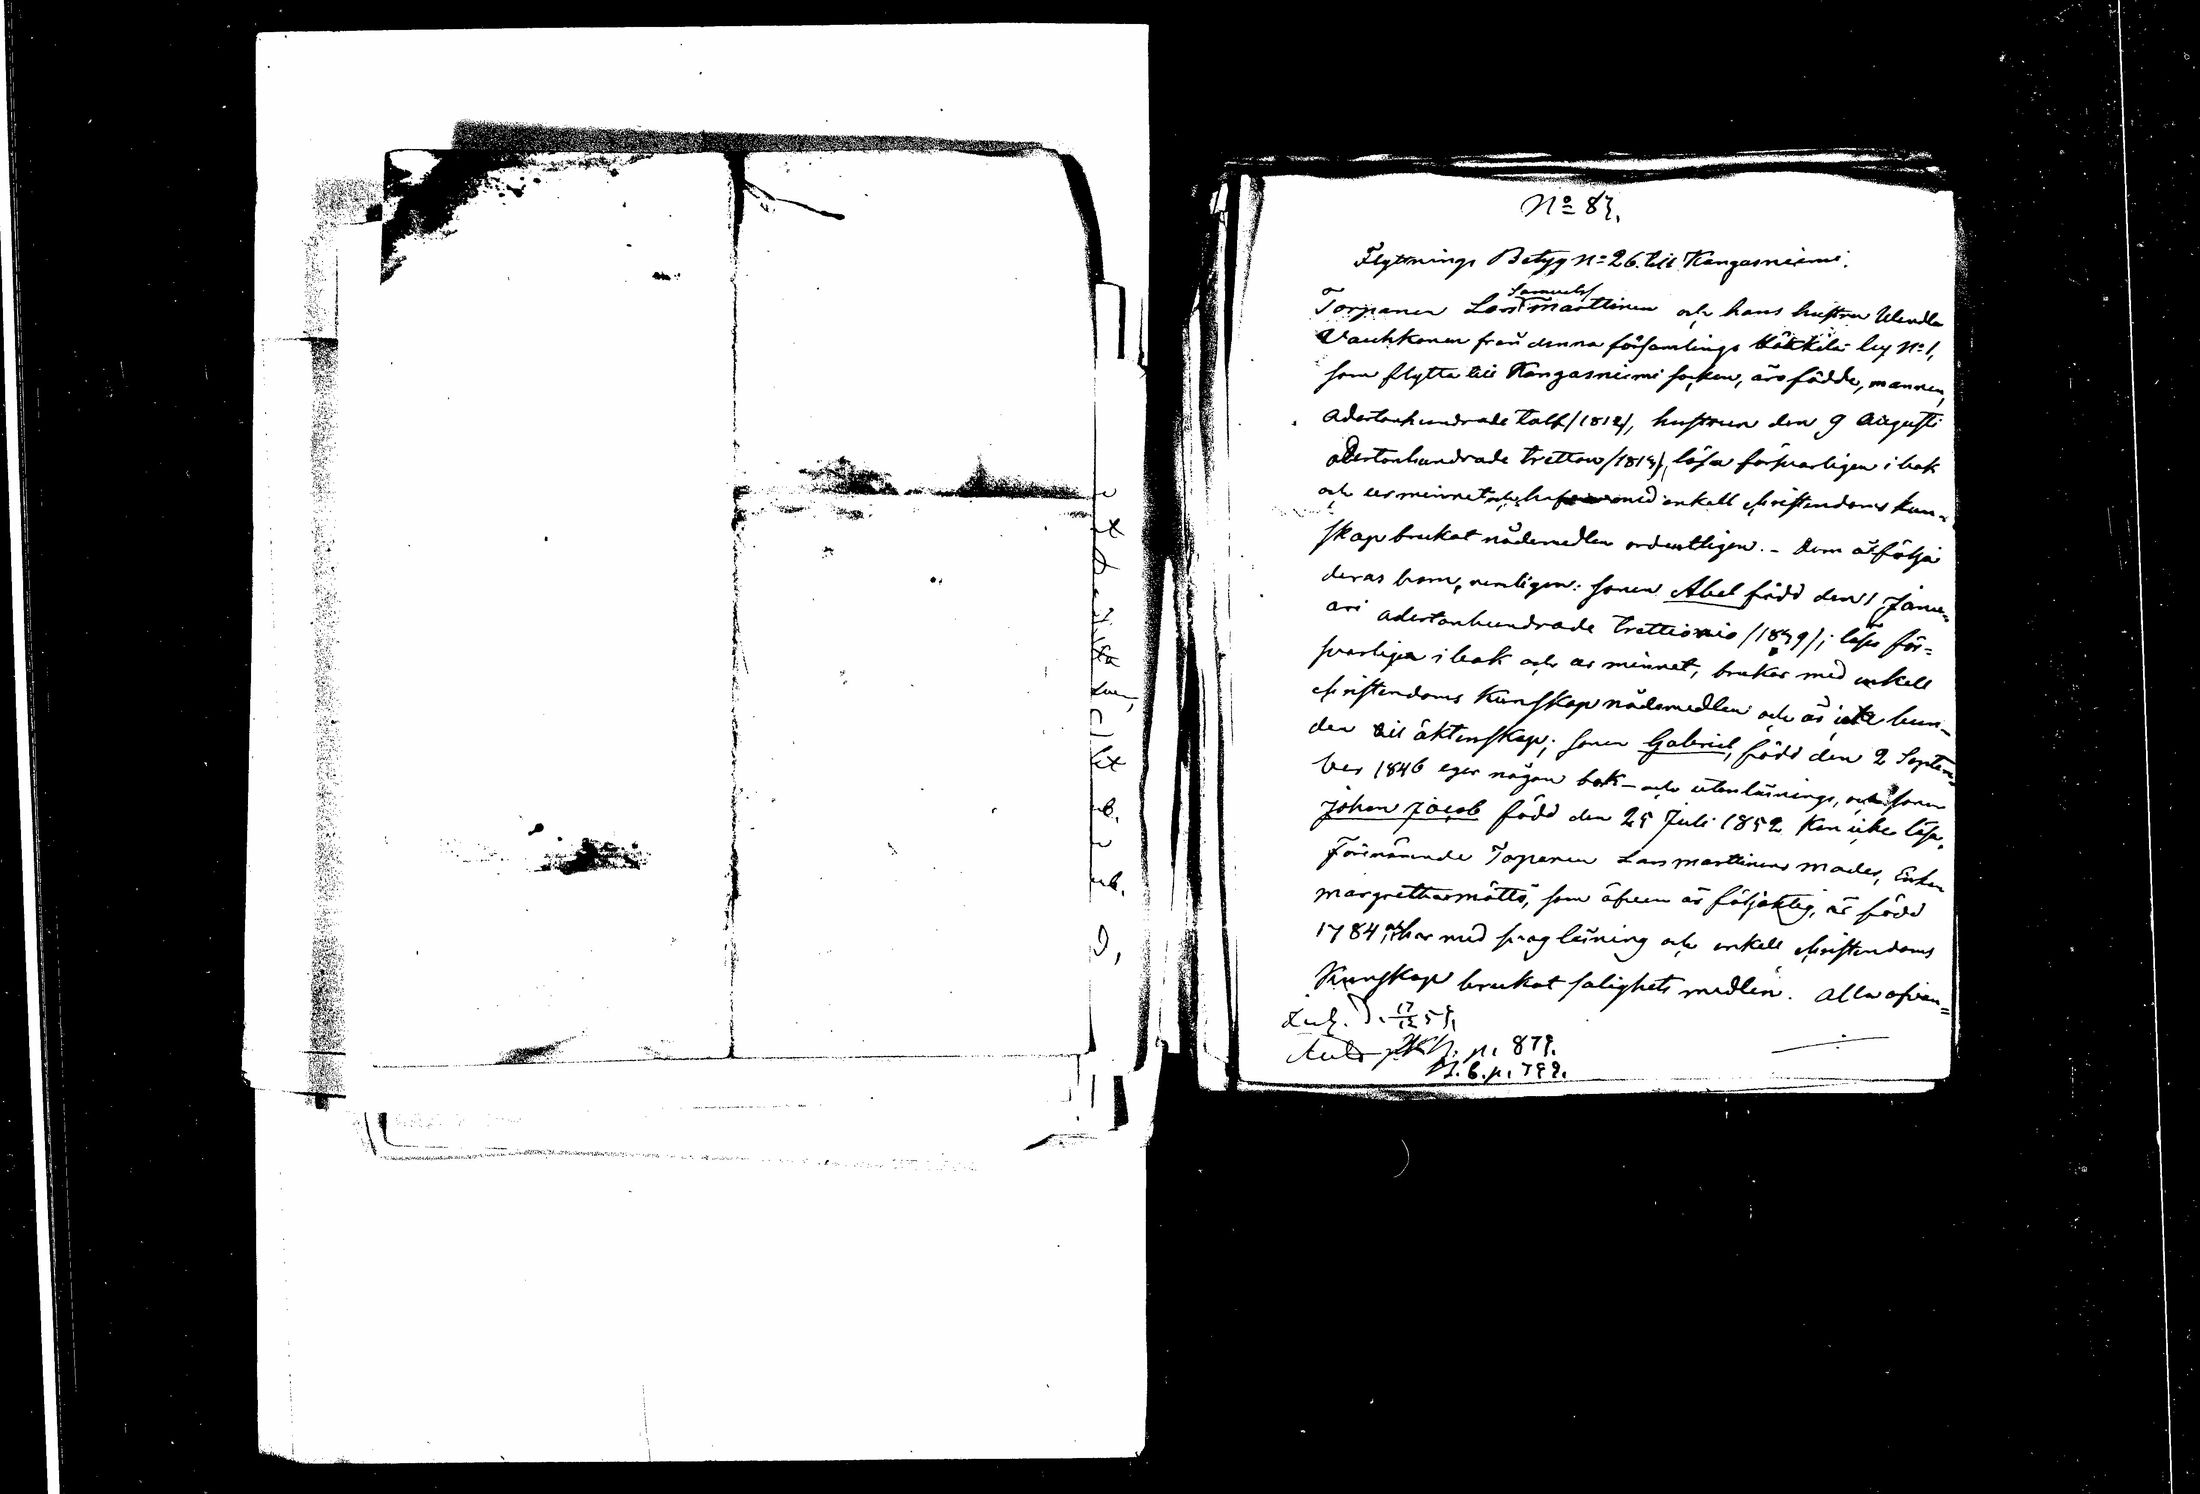 No 83.
Flyttnings Betyg No 26. till Kangasniemi.
Samuelss
Torparen Lars Marttinen och hans hustru Wendla
Vauhkonen från denna församlings by No 1,
som flytta till Kangasniemi socken, äro födde, mannen
adertonhundrade tolf /1812/, hustrun den 9 Augusti
adertonhundrade tretton /1813/, läsa försvarligen i bok
och ur minnet och med enkell christendoms kun-
skap brukat nådemedlen ordentligen. - Dem åtfölja
deras barn, nemligen: sonen Abel född den 1 Janu-
ari adertonhundrade trettionio /1839/; läser för-
svarligen i bok och ur minnet, brukar med enkell
christendoms kunskap nådemedlen och är icke bun-
den till äktenskap; sonen Gabriel, född den 2 Septem-
ber 1846 eger någon bok- och utanläsning, och sonen
Johan Jacob född den 25 Juli 1852 kan icke läsa.
Förenämnde Torparen Lars Marttinens moder, Enkan
Margretha, som äfven är följaktig, är född
1784, har med svag läsning och enkell christendoms
kunskap brukat salighets medlen. Alla ofvan-
17/12 55.
p. 879.
p. 799.